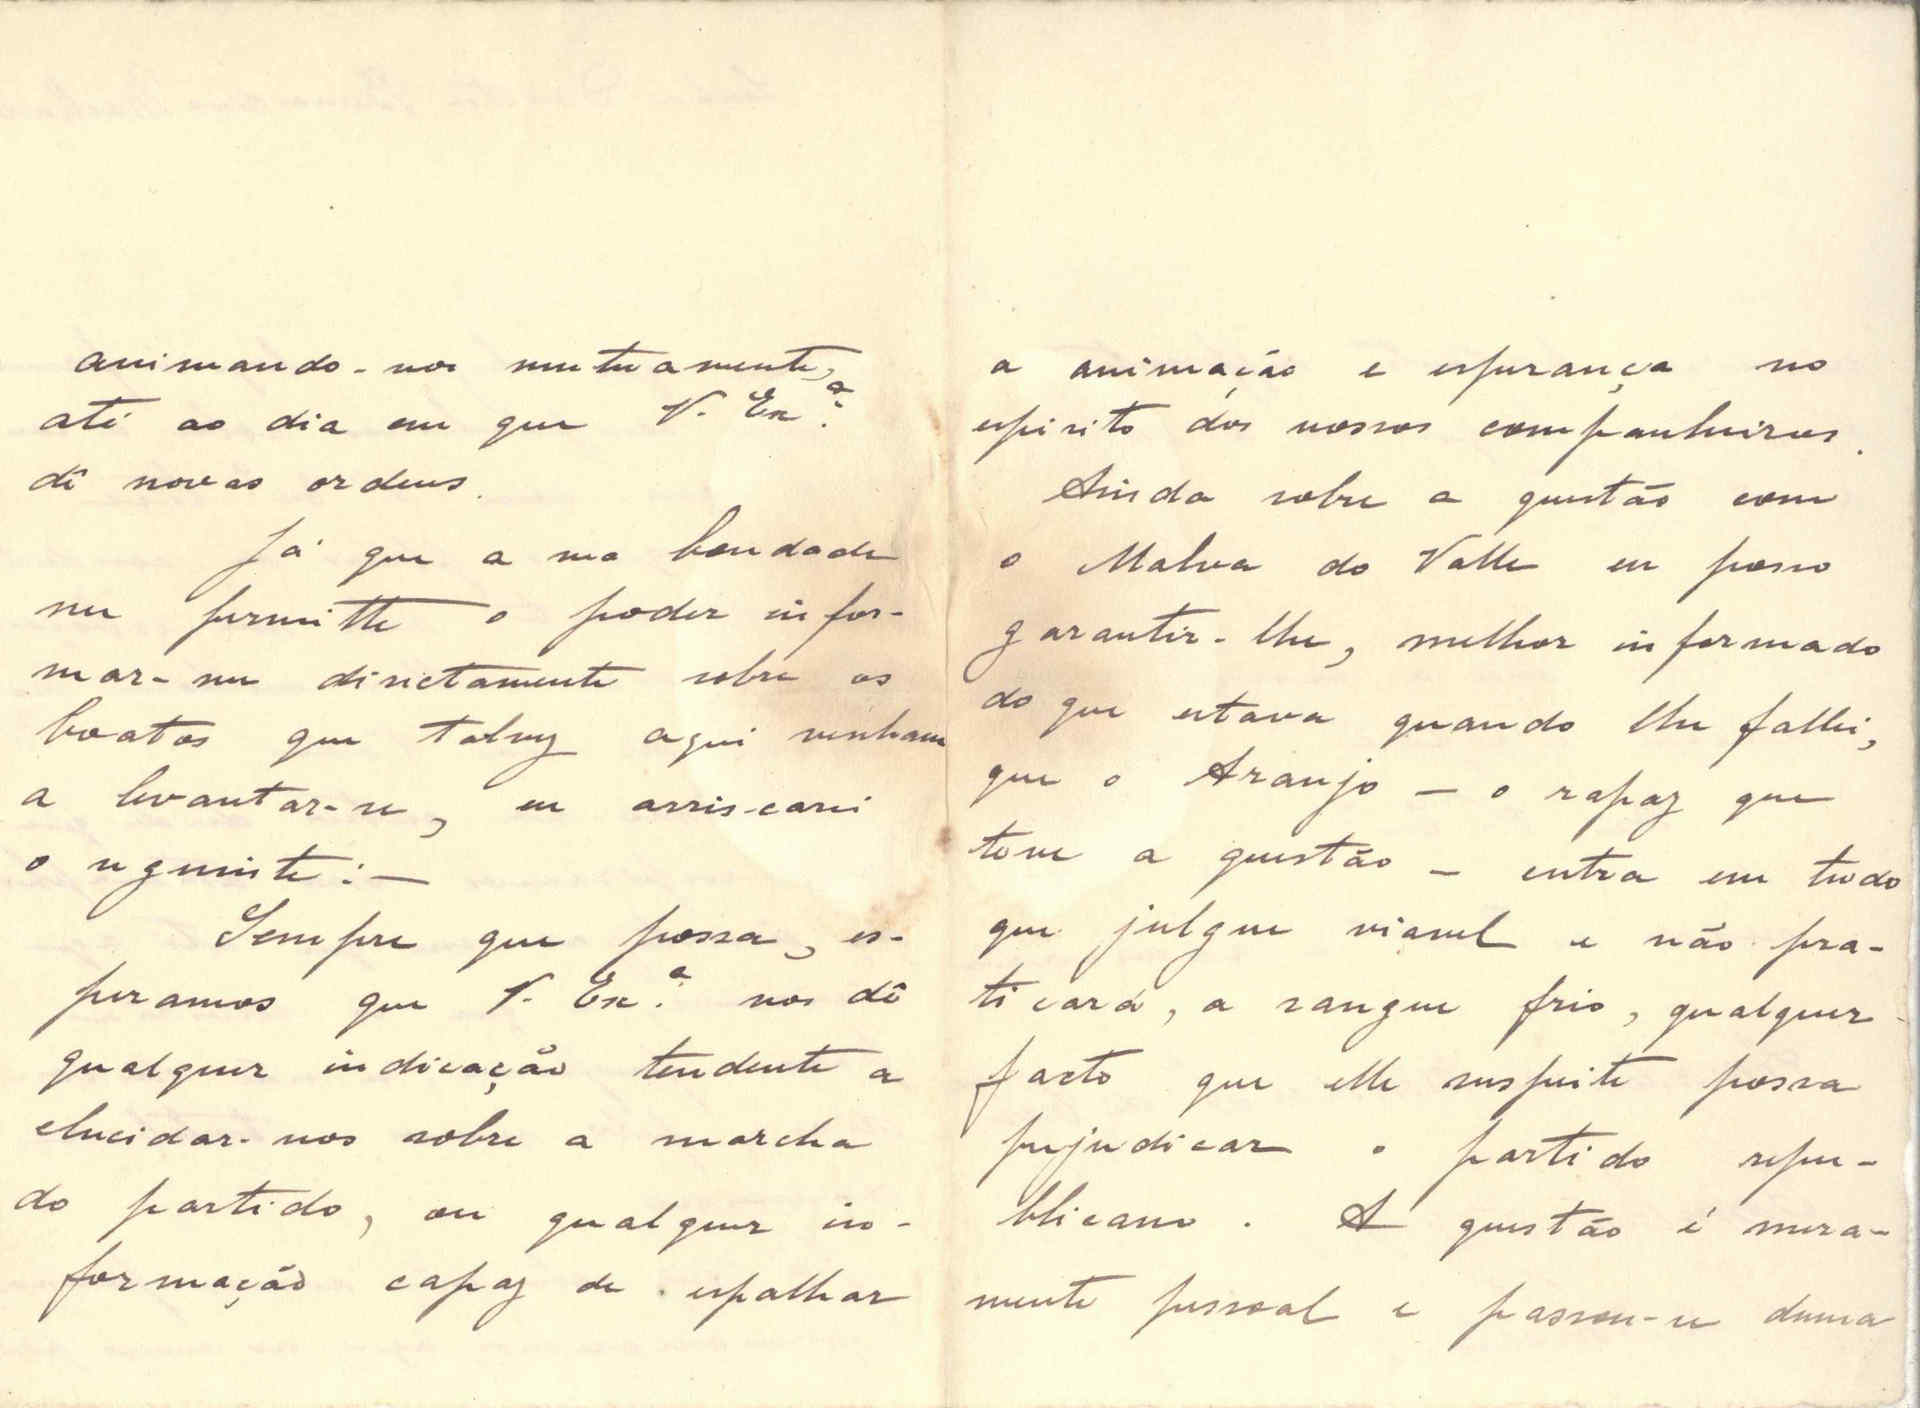 animando-nos mutuamente,
até ao dia em que V. Ex.ª
dê novas ordens.
Já que a sua bondade
me permitte o poder infor-
mar-me directamente sobre os
boatos que talvez aqui venham
a levantar-se, eu arriscarei
o seguinte: —
Sempre que possa, es-
peramos que V. Ex.ª nos dê
qualquer indicação tendente a
elucidar-nos sobre a marcha
do partido, ou qualquer in-
formação capaz de espalhar
a animação e esperança no
espirito dos nossos companheiros.
Ainda sobre a questão com
o Malva do Valle eu posso
garantir-lhe, melhor informado
do que estava quando lhe fallei,
que o Araujo — o rapaz que
teve a questão — entra em tudo
que julgue viavel e não pra-
ticará, a sangue frio, qualquer
facto que elle suspeite possa
prejudicar o partido repu-
blicano. A questão é mera-
mente pessoal e passou-se duma